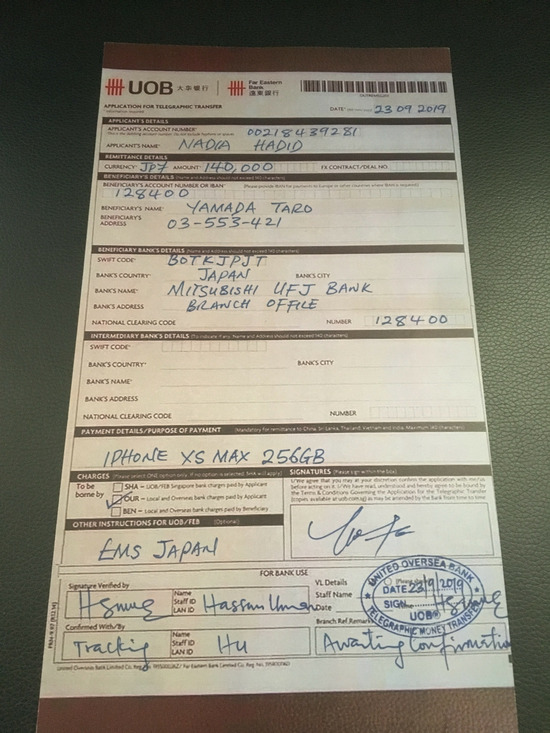 UOB 大华银行 | Far Eastern Bank 遠東銀行
APPLICATION FOR TELEGRAPHIC TRANSFER
DATE* 23 09 2019
APPLICANT'S DETAILS
APPLICANT'S ACCOUNT NUMBER* 00218439281
APPLICANT'S NAME* NADIA HADID
REMITTANCE DETAILS
CURRENCY* JPY AMOUNT* 140,000 FX CONTRACT/DEAL NO.
BENEFICIARY'S DETAILS (Name and Address should not exceed 140 characters)
BENEFICIARY'S ACCOUNT NUMBER OR IBAN*
128400
BENEFICIARY'S NAME* YAMADA TARO
BENEFICIARY'S ADDRESS 03-553-421
BENEFICIARY BANK'S DETAILS (Name and Address should not exceed 140 characters)
SWIFT CODE* BOTKJPJT
BANK'S COUNTRY* JAPAN BANK'S CITY
BANK'S NAME* MITSUBISHI UFJ BANK
BANK'S ADDRESS BRANCH OFFICE
NATIONAL CLEARING CODE NUMBER 128400
INTERMEDIARY BANK'S DETAILS
SWIFT CODE*
BANK'S COUNTRY* BANK'S CITY
BANK'S NAME*
BANK'S ADDRESS
NATIONAL CLEARING CODE NUMBER
PAYMENT DETAILS/PURPOSE OF PAYMENT
IPHONE XS MAX 256GB
CHARGES
To be borne by
SHA – UOB/FEB Singapore bank charges paid by Applicant
OUR – Local and Overseas bank charges paid by Applicant
BEN – Local and Overseas bank charges paid by Beneficiary
SIGNATURES (Please sign within the box)
OTHER INSTRUCTIONS FOR UOB/FEB (Optional)
EMS JAPAN
FOR BANK USE
Signature Verified by
Name
Staff ID
LAN ID
Hassan
VL Details
Staff Name
Date
UNITED OVERSEA BANK
DATE 23/9/2019
SIGN
UOB
TELEGRAPHIC MONEY TRANSFER
Confirmed With/By
Tracking
Name
Staff ID
LAN ID
Hu
Branch Ref.Remark
Awaiting Confirmation